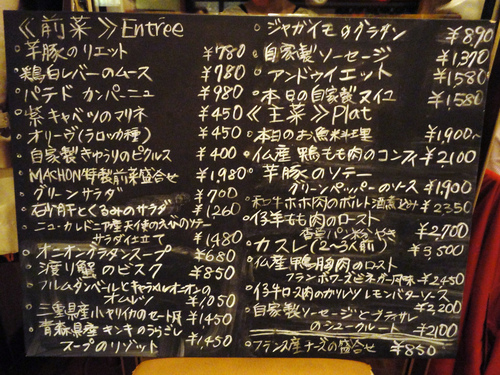 《前菜》Entrée
・芋豚のリエット ¥780
・鶏白レバーのムース ¥780
・パテド カンパーニュ ¥980
・紫キャベツのマリネ ¥450
・オリーヴ(ラロッカ種) ¥450
・自家製きゅうりのピクルス ¥400
・MACHON特製前菜盛合せ ¥1,980
・グリーンサラダ ¥700
・砂肝とくるみのサラダ ¥1,260
・ニューカレドニア産天使のえびのソテー
サラダ仕立て ¥1,480
・オニオングラタンスープ ¥680
・渡り蟹のビスク ¥850
・フルムダンベールとキャラメルオニオンの
オムレツ ¥1,050
・三重県産小ヤリイカのセート風 ¥1,450
・青森県産キンキの
スープのリゾット ¥1,450
・ジャガイモのグラタン ¥890
・自家製ソーセージ ¥1,370
・アンドゥイエット ¥1,580
・本日の自家製 ¥1,580
《主菜》Plat
・本日のお魚料理 ¥1,900〜
・仏産 鴨もも肉のコンフィ ¥2,100
・芋豚のソテー
グリーンペッパーのソース ¥1,900
・和牛ホホ肉のポルト酒煮込み ¥2,350
・仔羊もも肉のロースト
香草パン粉 ¥2,700
・カスレ(2〜3人前) ¥3,500
・仏産鴨胸肉のロースト
フランボワーズビネガー風味 ¥2,450
・仔牛ロース肉のカツレツ レモンバターソース
¥2,200
・自家製ソーセージと
のシュークルート ¥2,100
・フランス産チーズの盛合せ ¥850